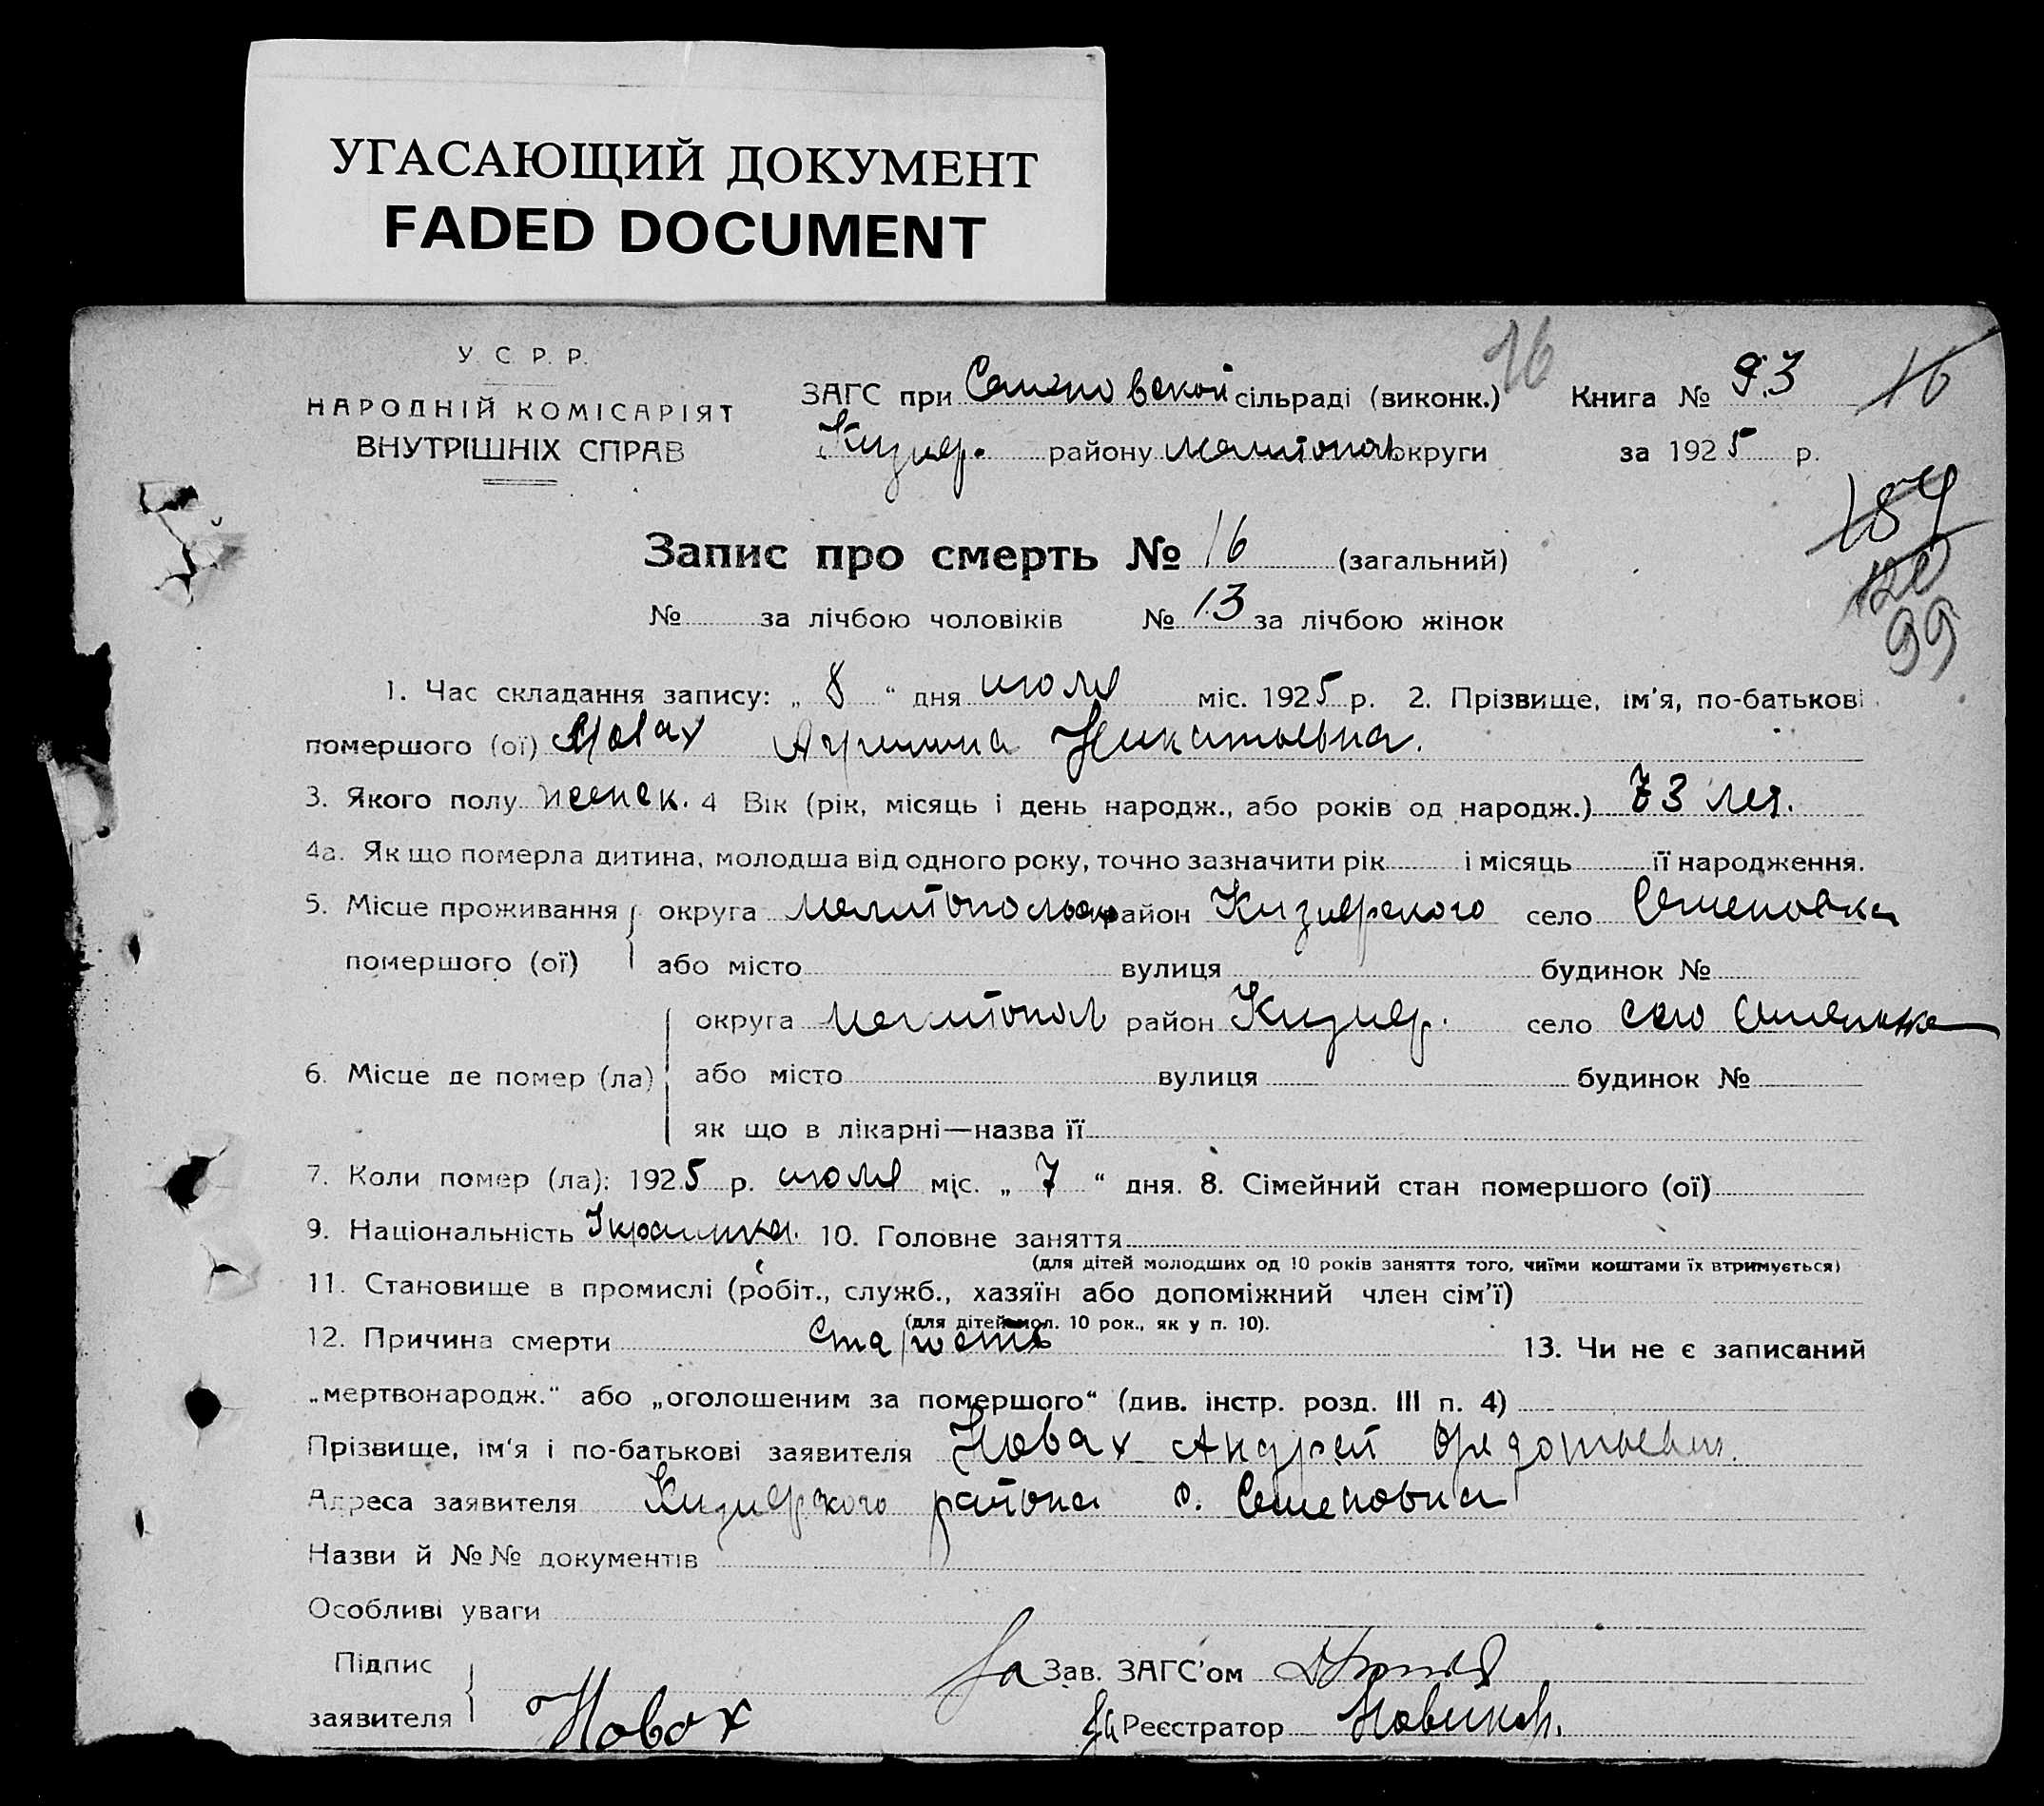 УГАСАЮЩИЙ ДОКУМЕНТ
FADED DOCUMENT
У. С. Р. Р.
НАРОДНІЙ КОМІСАРІЯТ
ВНУТРІШНІХ СПРАВ
ЗАГС при Семеновской сільраді (виконк.) 16 Книга № 93 16
Кизияр. району Мелитополь округи за 1925 р.
Запис про смерть № 16 (загальний)
№ за лічбою чоловіків № 13 за лічбою жінок
99
1. Час складання запису: „ 8 “ дня июля міс. 1925 р. 2. Прізвище, ім'я, по-батькові
помершого (ої) Новах
3. Якого полу женск. 4 Вік (рік, місяць і день народж., або років од народж.) 73 лет.
4а. Як що померла дитина, молодша від одного року, точно зазначити рік і місяць її народження.
5. Місце проживання округа район Кизиярского село Семеновка
помершого (ої) або місто вулиця будинок №
округа Мелитопол район Кизияр. село село Семеновка
6. Місце де помер (ла) або місто вулиця будинок №
як що в лікарні—назва її
7. Коли помер (ла): 1925 р. июля міс. „ 7 “ дня. 8. Сімейний стан помершого (ої)
9. Національність 10. Головне заняття
(для дітей молодших од 10 років заняття того, чиїми коштами їх втримується)
11. Становище в промислі (робіт., служб., хазяїн або допоміжний член сім'ї)
(для дітей мол. 10 рок., як у п. 10).
12. Причина смерти старость 13. Чи не є записаний
„мертвонародж.“ або „оголошеним за помершого“ (див. інстр. розд. III п. 4)
Прізвище, ім'я і по-батькові заявителя Новах Андрей
Адреса заявителя Кизиярского района с. Семеновка
Назви й №№ документів
Особливі уваги
Підпис
заявителя Новах
За Зав. ЗАГС'ом
За Реєстратор